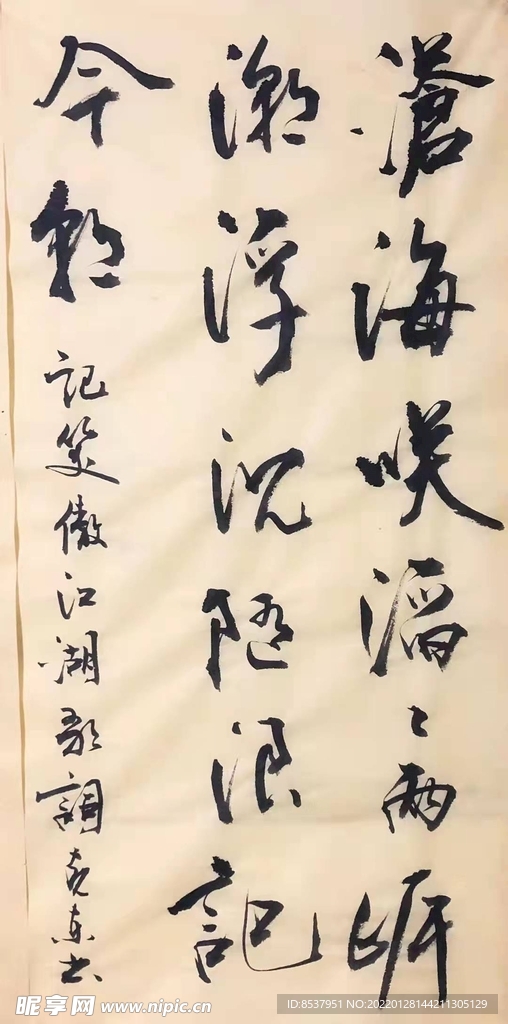 滄海咲滔〻兩岸
潮浮沉随浪記
今朝 記笑傲江湖歌詞 克东书
昵享网 www.nipic.cn
ID:8537951 NO:20220128144211305129